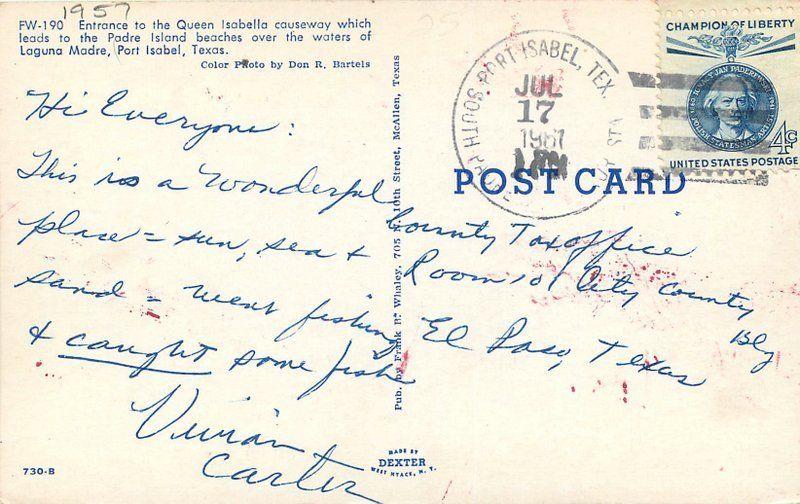 1957
FW-190 Entrance to the Queen Isabella causeway which
leads to the Padre Island beaches over the waters of
Laguna Madre, Port Isabel, Texas.
Color Photo by Don R. Bartels
Hi Everyone:
This is a wonderful
place = sun, sea +
sand = went fishing
+ caught some fish
Vivian
Carter
730-B
Pub. by Frank R. Whaley, 705 10th Street, McAllen, Texas
MADE BY
DEXTER
WEST NYACK, N. Y.
PORT ISABEL, TEX.
SOUTH
STA.
JUL
17
1961
POST CARD
CHAMPION OF LIBERTY
IGNACY JAN PADEREWSKI
1860
1941
POLISH STATESMAN ARTIST
4c
UNITED STATES POSTAGE
County Tax office
Room 101 City County
Bldg
El Paso, Texas